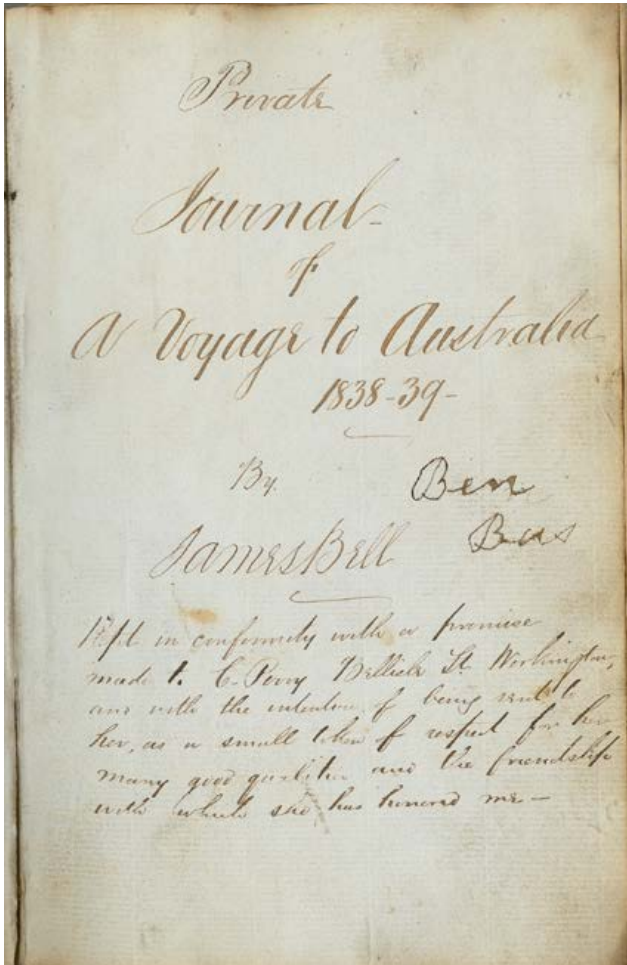 Private
Journal
of
A Voyage to Australia
1838-39-
By.
Ben
Bus
James Bell
Kept in conformity with a promise
made to C. Perry Bellisle St. Workington,
and with the intention of being sent to
her, as a small token of respect for her
many good qualities and the friendship
with which she has honored me—